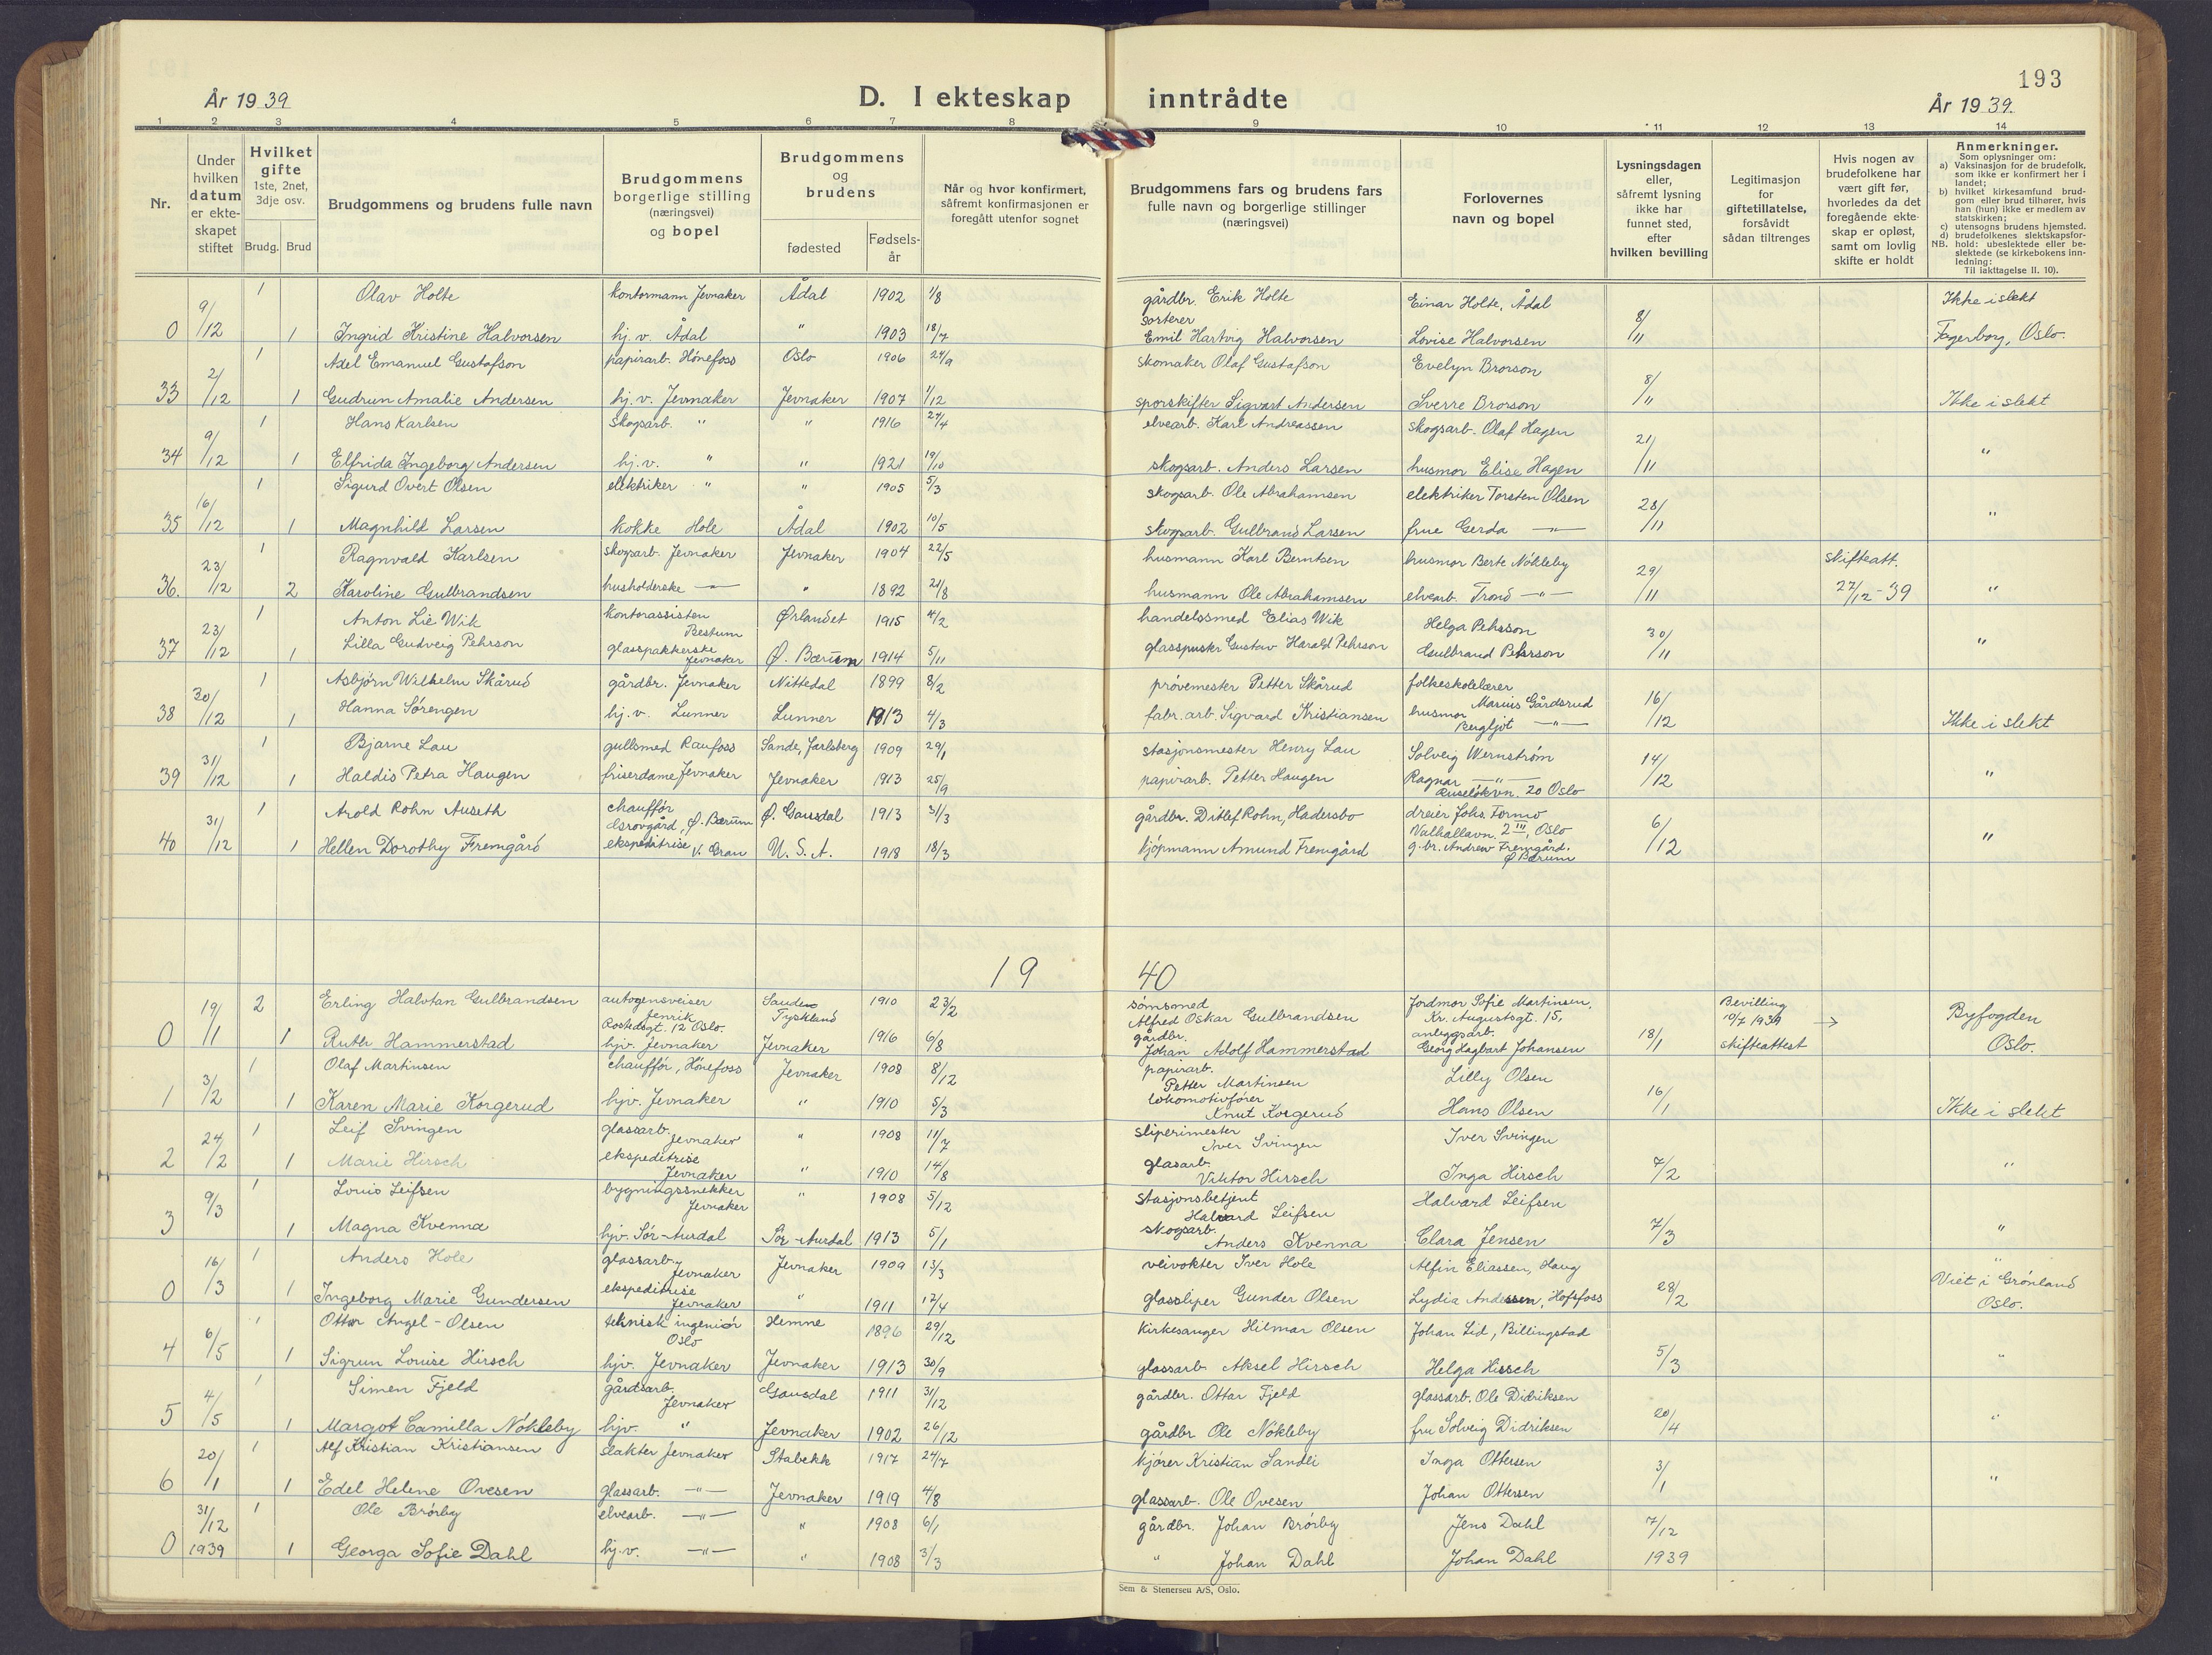 193
År 1939
D. I ekteskap inntrådte
År 1939.
1 2 3 4 5 6 7 8 9 10 11 12 13 14
Nr.
Under hvilken datum er ekteskapet stiftet
Hvilket gifte 1ste, 2net, 3dje osv.
Brudg. Brud
Brudgommens og brudens fulle navn
Brudgommens borgerlige stilling (næringsvei) og bopel
Brudgommens og brudens
fødested
Fødselsår
Når og hvor konfirmert, såfremt konfirmasjonen er foregått utenfor sognet
Brudgommens fars og brudens fars fulle navn og borgerlige stillinger (næringsvei)
Forlovernes navn og bopel
Lysningsdagen eller, såfremt lysning ikke har funnet sted, efter hvilken bevilling
Legitimasjon for giftetillatelse, forsåvidt sådan tiltrenges
Hvis nogen av brudefolkene har vært gift før, hvorledes da det foregående ekteskap er opløst, samt om lovlig skifte er holdt
Anmerkninger.
Som oplysninger om:
a) Vaksinasjon for de brudefolk, som ikke er konfirmert her i landet;
b) hvilket kirkesamfund brudgom eller brud tilhører, hvis han (hun) ikke er medlem av statskirken;
c) utensogns brudens hjemsted.
d) brudefolkenes slektskapsforhold: ubeslektede eller beslektede (se kirkebokens innledning:
NB. Til iakttagelse II. 10).
9/12 1 Olav Holte kontormann Jevnaker Ådal 1902 1/8 gårdbr. Erik Holte Einar Holte, Ådal 8/11 Ikke i slekt
0 1 Ingrid Kristine Halvorsen hj.v. Ådal " 1903 18/7 sorterer Emil Hartvig Halvorsen Lovise Halvorsen Fagerborg, Oslo.
2/12 1 Axel Emanuel Gustafson papirarb. Hønefoss Oslo 1906 24/9 skomaker Olaf Gustafson Evelyn Brorson 8/11
33 1 Gudrun Amalie Andersen hj.v. Jevnaker Jevnaker 1907 1/12 sporskifter Sigvart Andersen Sverre Brorson Ikke i slekt
9/12 1 Hans Karlsen Skogsarb. " " 1916 27/4 elvearb. Karl Andreassen skogsarb. Olaf Hagen 21/11
34 1 Elfrida Ingeborg Andersen hj.v. " " 1921 19/10 skogsarb. Anders Larsen husmor Elise Hagen "
16/12 1 Sigurd Overt Olsen elektriker " " 1905 5/3 skogsarb. Ole Abrahamsen elektriker Torsten Olsen 28/11
35 1 Magnhild Larsen kokke Hole Ådal 1902 10/5 skogsarb. Gulbrand Larsen frue Gerda —"— "
23/12 1 Ragnvald Karlsen skogsarb. Jevnaker Jevnaker 1904 22/5 husmann Karl Berntsen husmor Berte Nökleby 29/11 skifteatt.
36. 2 Karoline Gulbrandsen husholderske —"— " 1892 21/8 husmann Ole Abrahamsen elvearb. Trond —"— 27/12-39 "
23/12 1 Anton Lie Wik kontorassisten Bestum Ørlandet 1915 4/2 handelssmed Elias Wik Helga Pehrson 30/11
37 1 Lilla Gudveig Pehrson glasspakkerske Jevnaker Ø. Bærum 1914 5/11 glasspuster Gustav Harald Pehrson Gulbrand Pehrson "
30/12 1 Asbjørn Wilhelm Skårud gårdbr. Jevnaker Nittedal 1899 8/2 prövemester Petter Skårud folkeskolelærer Marius Gårdsrud 16/12
38 1 Hanna Sørengen hj.v. Lunner Lunner 1913 4/3 fabr.arb. Sigvard Kristiansen husmor Bergljot —"— Ikke i slekt
31/12 1 Bjarne Lau gullsmed Raufoss Sande, Jarlsberg 1909 29/1 stasjonsmester Henry Lau Solveig Wernström 14/12
39 1 Haldis Petra Haugen friserdame Jevnaker Jevnaker 1913 25/9 papirarb. Petter Haugen Ragnar —"— Ruseløkvn. 20 Oslo "
31/12 1 Arold Rohn Auseth chauffør Ø. Bærum Ø. Gausdal 1913 31/3 gårdbr. Ditlef Rohn, Hadersbo dreier Johs. Formo Valhallavn. 2 III, Oslo 6/12
40 1 Hellen Dorothy Fremgård ekspeditrise V. Gran U.S.A. 1918 18/3 kjöpmann Amund Fremgård g.br. Andrew Fremgård. Ø Bærum "
1940
19/1 2 Erling Halvtan Gulbrandsen autogensveiser Rostedsgt. 12 Oslo. Tyskland 1910 23/2 sömsmed Alfred Oskar Gulbrandsen Jordmor Sofie Martinsen, Kr. Augustsgt. 15, 18/1 Bevilling 10/7 1939 → Byfogden
0 1 Ruth Hammerstad hjv. Jevnaker Jevnaker 1916 6/8 gårdbr. Johan Adolf Hammerstad anleggsarb. Georg Hagbart Johansen skifteattest Oslo.
3/2 1 Olaf Martinsen chauffør, Hönefoss Jevnaker 1908 8/12 papirarb. Petter Martinsen Lilly Olsen 16/1
1 1 Karen Marie Korgerud hjv. Jevnaker " 1910 5/3 lokomotivfører Knut Korgerud Hans Olsen Ikke i slekt
24/2 1 Leif Svingen glassarb. Jevnaker " 1908 11/7 sliperimester Iver Svingen Iver Svingen 7/2
2 1 Marie Hirsch ekspeditrise Jevnaker " 1910 14/8 glasarb. Viktor Hirsch Inga Hirsch "
9/3 1 Louis Leifsen bygningssnekker Jevnaker " 1908 5/12 stasjonsbetjent Halvard Leifsen Halvard Leifsen 7/3
3 1 Magna Kvenna hjv. Sör-Aurdal Sör-Aurdal 1913 5/1 skogsarb. Anders Kvenna Clara Jensen "
16/3 1 Anders Hole glassarb. Jevnaker Jevnaker 1909 13/3 veivokter Iver Hole Alfin Eliassen, Haug 28/2 "
0 1 Ingeborg Marie Gundersen ekspeditrise Jevnaker " 1911 12/4 glassliper Gunder Olsen Lydia Andessen, Hofsfoss Viet i Grönland Oslo.
6/5 1 Ottar Angel-Olsen teknisk ingeniör Oslo Hemne 1896 29/12 kirkesanger Hilmar Olsen Johan Lid, Billingstad 5/3
4 1 Sigrun Louise Hirsch hjv. Jevnaker Jevnaker 1913 30/9 glassarb. Aksel Hirsch Helga Hirsch "
4/5 1 Simen Fjeld gårdsarb. Jevnaker Gausdal 1911 31/12 gårdbr. Ottar Fjeld glassarb. Ole Didriksen 20/4
5 1 Margot Camilla Nökleby hjv. " Jevnaker 1902 26/12 gårdbr Ole Nökleby fru Solveig Didriksen "
20/1 1 Alf Kristian Kristiansen slakter Jevnaker Stabekk 1917 24/7 kjörer Kristian Sandli Inga Ottersen 3/1
6 1 Edel Helene Ovesen glassarb. —"— Jevnaker 1919 4/8 glassarb. Ole Ovesen Johan Ottersen "
31/12 1 Ole Brörby elvearb. —"— " 1908 6/1 gårdbr. Johan Brörby Jens Dahl 7/12
0 1939 1 Georga Sofie Dahl hj.v. —"— " 1908 3/3 " Johan Dahl Johan Dahl 1939
Sem & Stenersen A/S, Oslo.